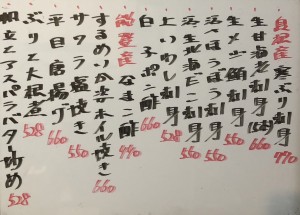 氷見産 寒ぶり刺身 770
生甘海老刺身 660
生メジ鮪刺身 550
活へほうぼう刺身 550
活生北海だこ刺身 550
上いわし刺身 528
白子ポン酢 660
能登産 なまこ酢 440
するめいか丸ホイル焼き 660
サワラ塩焼き 550
平目唐揚げ 660
ぶりと大根煮 528
帆立とアスパラバター炒め 528